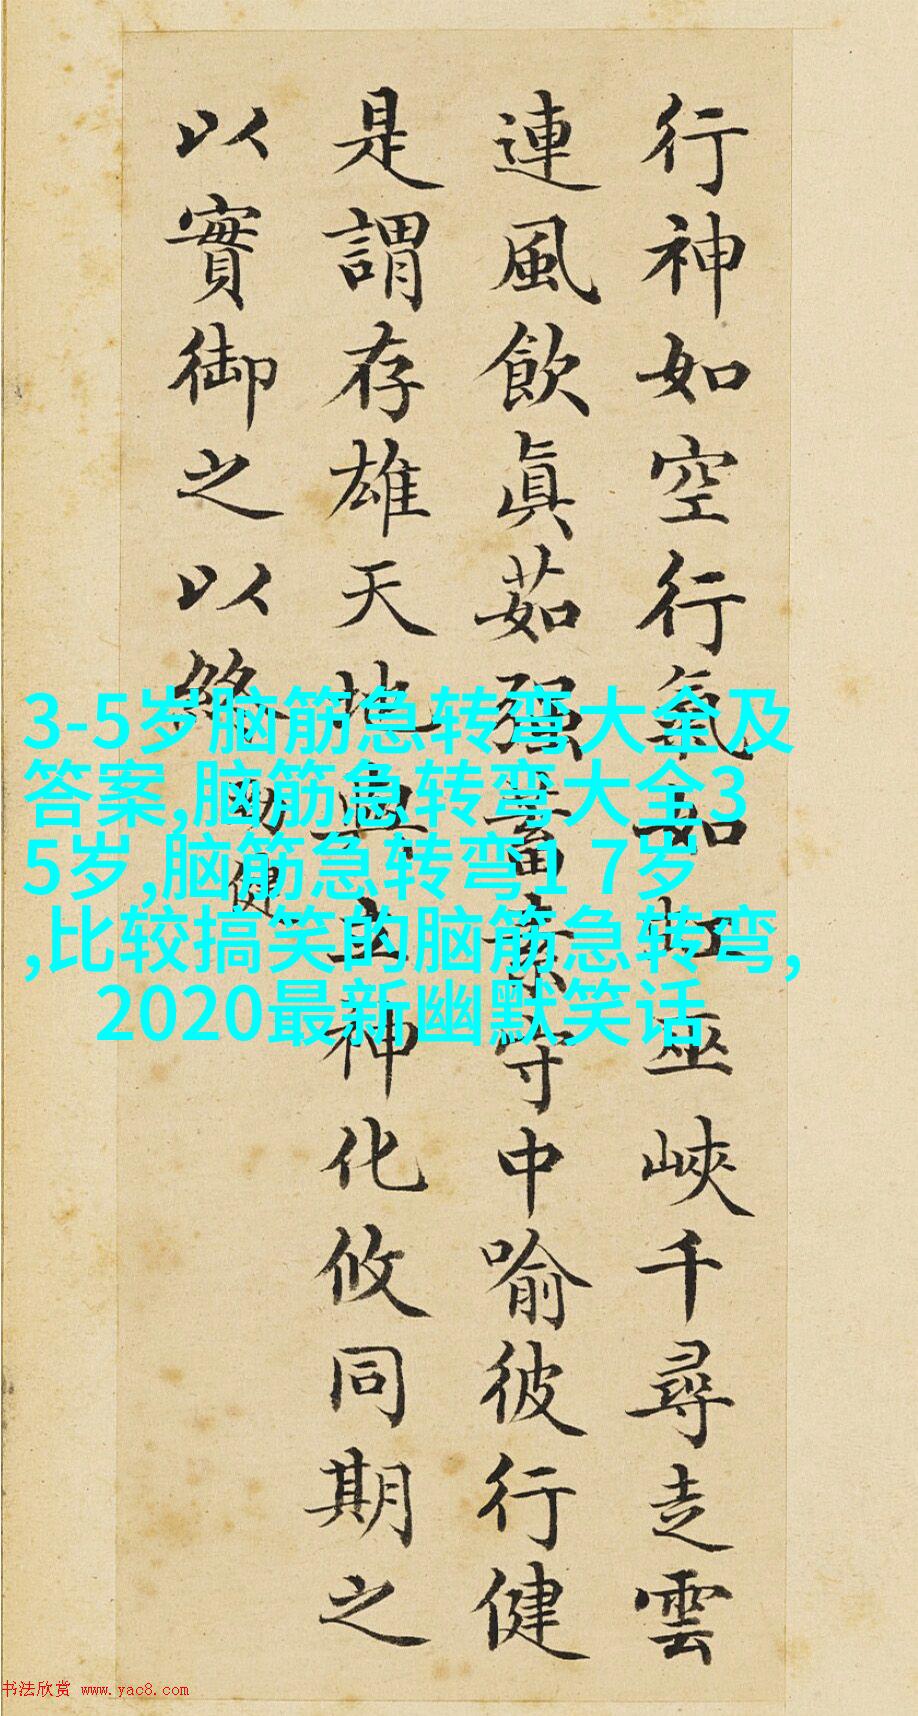 行神如空行氣如虹巫峽千尋走雲
連風飲眞茹强蓄素守中喻彼行健
是謂存雄天地與立神化攸同期之
以實御之以終 勁健
3-5岁脑筋急转弯大全及
答案,脑筋急转弯大全3
5岁,脑筋急转弯1 7岁
,比较搞笑的脑筋急转弯,
2020最新幽默笑话
书法欣赏 www.yac8.com